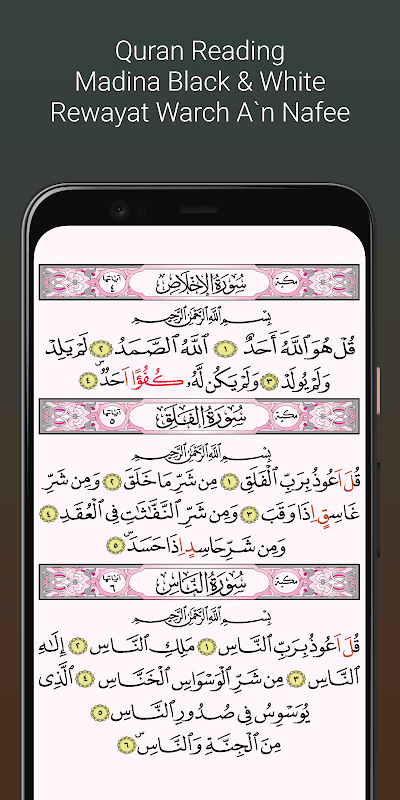 Quran Reading
Madina Black & White
Rewayat Warch A`n Nafee
مكية سُورَةُ الإِخْلَاصِ آياتها ٤
بِسْمِ اللَّهِ الرَّحْمَٰنِ الرَّحِيمِ
قُلْ هُوَ اَللَّهُ أَحَدٌ ١ اُللَّهُ اُلصَّمَدُ ٢ لَمْ يَلِدْ
وَلَمْ يُولَدْ ٣ وَلَمْ يَكُن لَّهُۥ كُفُؤًا اَحَدٌۢ ٤
مكية سُورَةُ الفَلَقِ آياتها ٥
بِسْمِ اللَّهِ الرَّحْمَٰنِ الرَّحِيمِ
قُلَ اَعُوذُ بِرَبِّ اِلْفَلَقِ ١ مِن شَرِّ مَا خَلَقَ ٢ وَمِن شَرِّ
غَاسِقٍ اِذَا وَقَبَ ٣ وَمِن شَرِّ اِلنَّفَّٰثَٰتِ فِي اِلْعُقَدِ ٤
وَمِن شَرِّ حَاسِدٍ اِذَا حَسَدَۖ ٥
مكية سُورَةُ النَّاسِ آياتها ٦
بِسْمِ اللَّهِ الرَّحْمَٰنِ الرَّحِيمِ
قُلَ اَعُوذُ بِرَبِّ اِلنَّاسِ ١ مَلِكِ اِلنَّاسِ ٢ إِلَٰهِ
اِلنَّاسِ ٣ مِن شَرِّ اِلْوَسْوَاسِ اِلْخَنَّاسِ ٤ اِلَّذِي
يُوَسْوِسُ فِي صُدُورِ اِلنَّاسِ ٥
مِنَ اَلْجِنَّةِ وَالنَّاسِۖ ٦